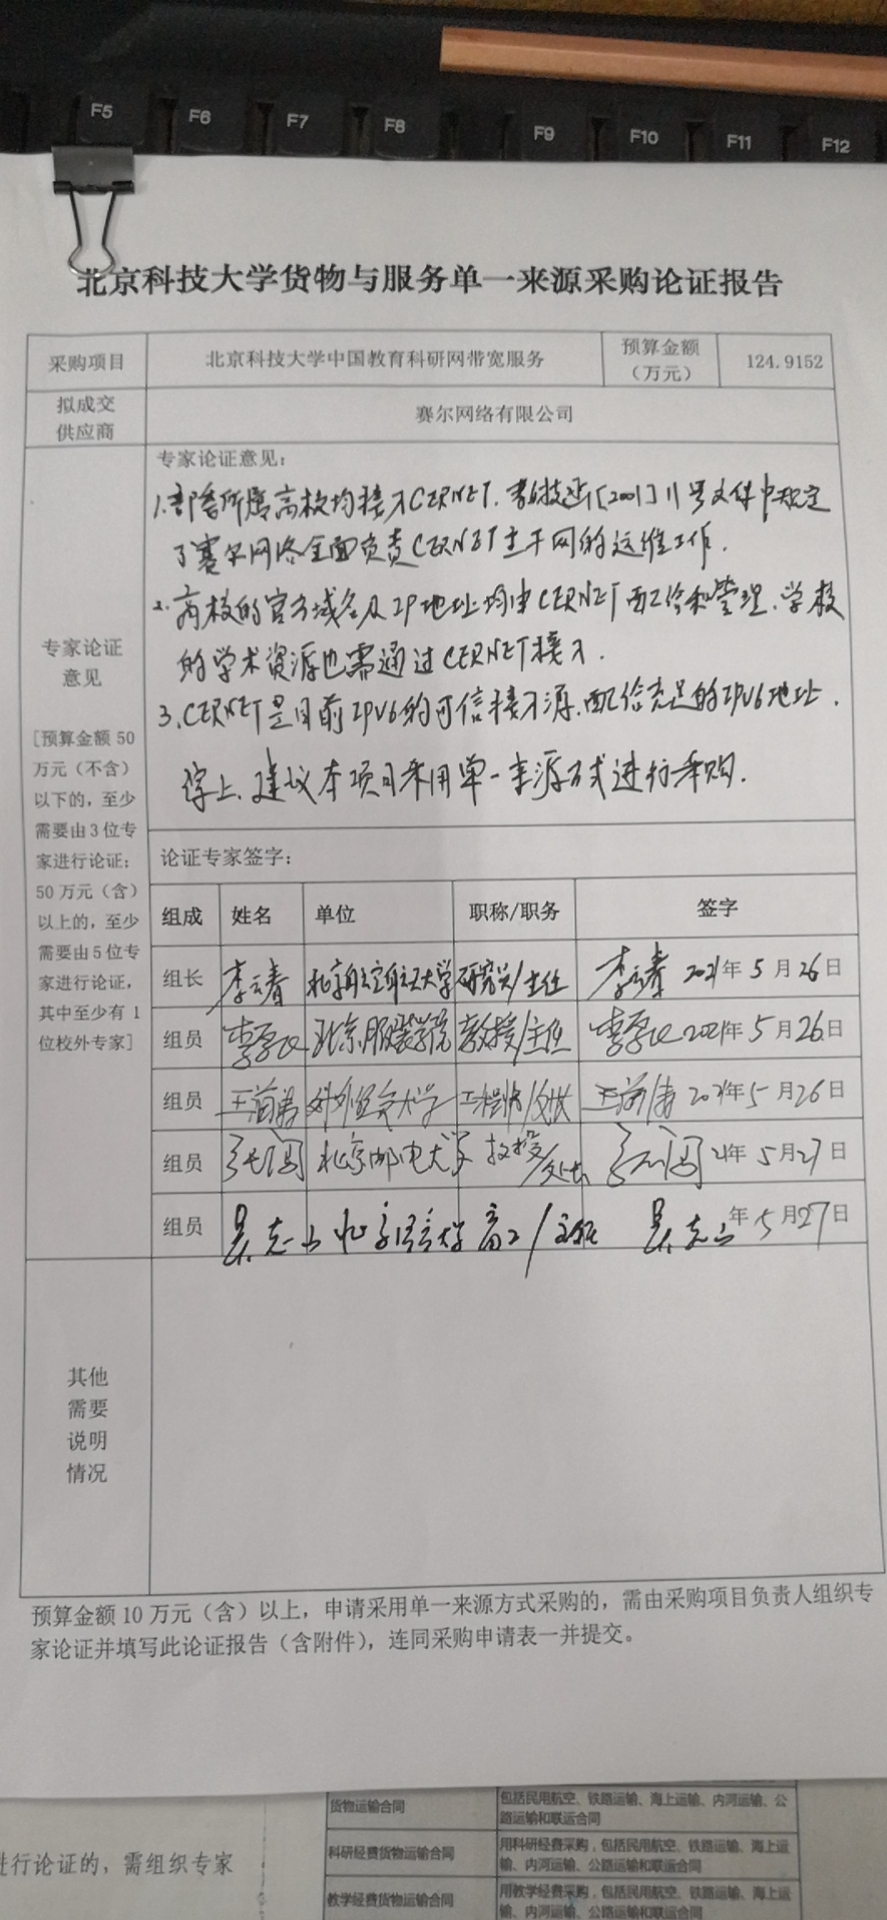 F5 F6 F7 F8 F9 F10 F11 F12
北京科技大学货物与服务单一来源采购论证报告
采购项目 北京科技大学中国教育科研网带宽服务 预算金额（万元） 124.9152
拟成交供应商 赛尔网络有限公司
专家论证意见
[预算金额50
万元（不含）
以下的，至少
需要由3位专
家进行论证；
50万元（含）
以上的，至少
需要由5位专
家进行论证，
其中至少有1
位校外专家]
专家论证意见：
1.部委所属高校均接入CERNET.教技发[2001]11号文件中规定
了赛尔网络全面负责CERNET主干网的运维工作.
2.高校的官方域名及IP地址均由CERNET配给和管理.学校
的学术资源也需通过CERNET接入.
3.CERNET是目前IPV6的可信接入源.配给充足的IPV6地址.
综上.建议本项目采用单一来源方式进行采购.
论证专家签字：
组成 姓名 单位 职称/职务 签字
组长 李云春 北京航空航天大学 研究员/主任 李云春 2021年5月26日
组员 北京服装学院 教授/主任 2021年5月26日
组员 对外经贸大学 工程师/处长 2021年5月26日
组员 北京邮电大学 教授/处长 21年5月27日
组员 吴志山 北京语言大学 高工/主任 吴志山 年5月27日
其他
需要
说明
情况
预算金额10万元（含）以上，申请采用单一来源方式采购的，需由采购项目负责人组织专
家论证并填写此论证报告（含附件），连同采购申请表一并提交。
进行论证的，需组织专家
货物运输合同 包括民用航空、铁路运输、海上运输、内河运输、公
路运输和联运合同
科研经费货物运输合同 用科研经费采购，包括民用航空、铁路运输、海上运
输、内河运输、公路运输和联运合同
教学经费货物运输合同 用教学经费采购，包括民用航空、铁路运输、海上运
输、内河运输、公路运输和联运合同